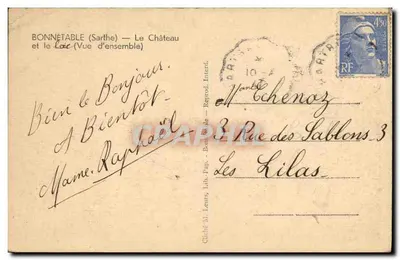 BONNETABLE (Sarthe) — Le Château
et le Lac (Vue d'ensemble)
Bien le Bonjour.
A Bientôt.
Mame. Raphaël
Cliché M. Leurs, Lib. Pap. Reprod. Interd.
4F50
RF
Echenoz
3 Rue des Sablons 3
Les Lilas